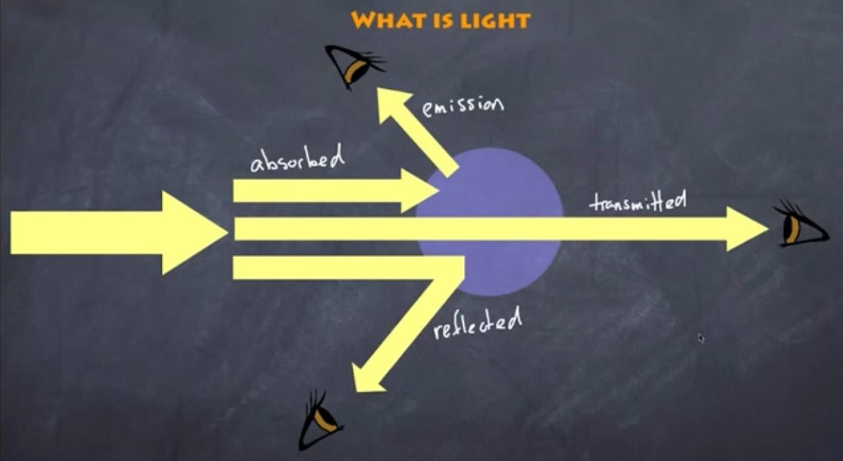 WHAT IS LIGHT
emission
absorbed
transmitted
reflected